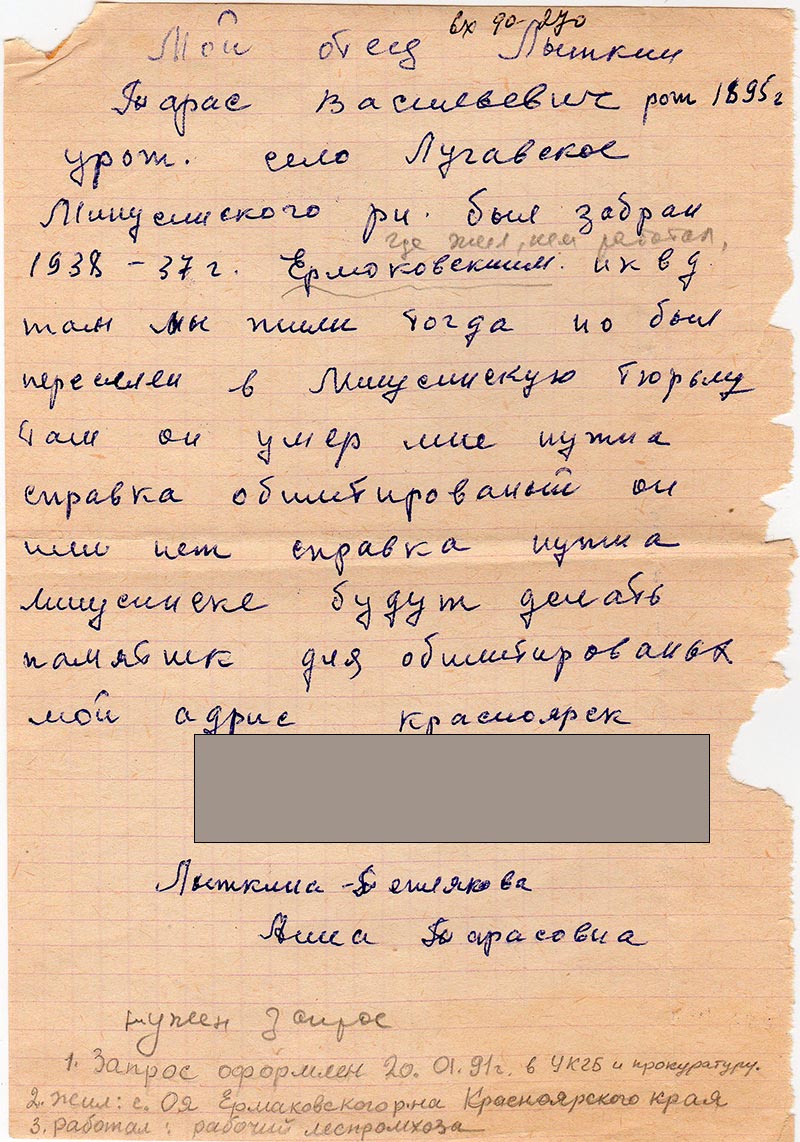 вх 90-270
Мой отец Лыткин
Тарас Васильевич рож 1895 г
урож. село Лугавское
Минусинского рн. был забран
где жил, кем работал,
1938-37 г. Ермоковскиим. нквд
там мы жили тогда но был
переслен в Минусинскую тюрьму
там он умер мне нужна
справка обилитированый он
или нет справка нужна
минусинске будут делать
памятник для обилитированых
мой адрис красноярск
Лыткина-
Анна Тарасовна
нужен запрос
1. Запрос оформлен 20.01.91г. в УКГБ и прокуратуру.
2. жил: с. Оя Ермаковского р-на Красноярского края
3. работал: рабочий леспромхоза